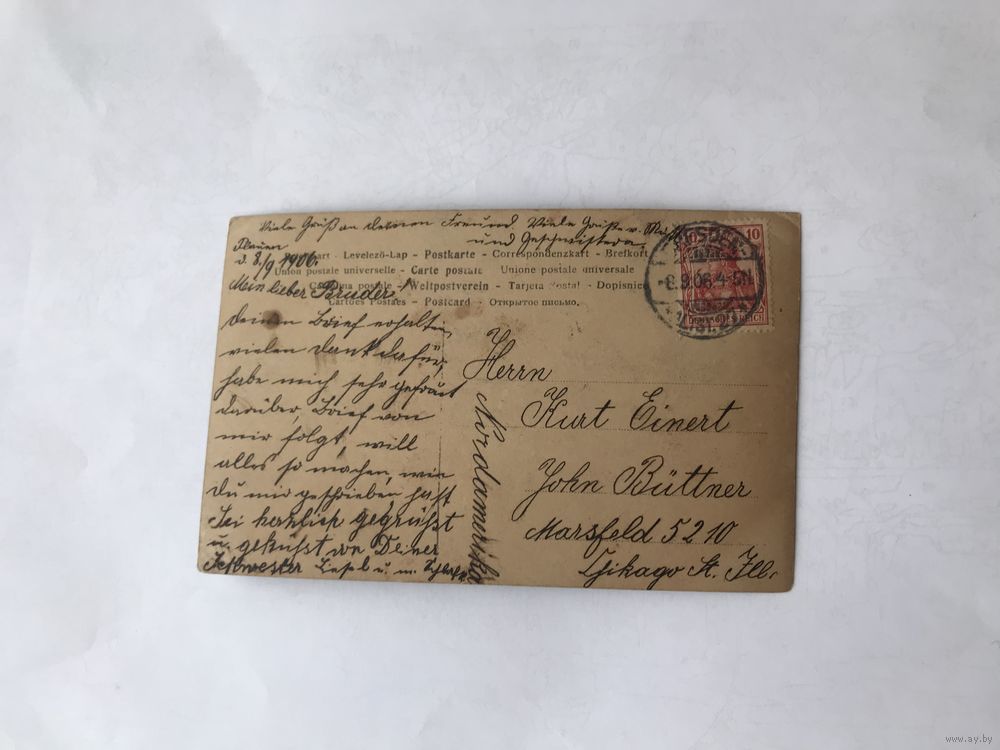 Viele Grüß an deinen Freund. Viele Grüße v. Mutter
und Geschwistern
Plauen
d. 8./9 1906.
Mein lieber Bruder!
deinen Brief erhalten,
vielen dank dafür,
habe mich sehr gefräut
darüber, Brief von
mir folgt, will
alles so machen, wie
du mir geschrieben hast
Sei herzlich gegrüßt
u. geküsst von Deiner
Schwester Liesel u. m.
- Levelező-Lap - Postkarte - Correspondenzkart - Brefkort
Union postale universelle - Carte postale Unione postale universale
postale - Weltpostverein - Tarjeta Postal - Dopisnice
Cartões Postaes - Postcard - Открытое письмо.
10
-8.9.06.4-5N
DEUTSCHES REICH
Herrn
Kurt Einert
John Büttner
Marsfeld 5210
Tschikago St. Ill.
Nordamerika
www.ay.by